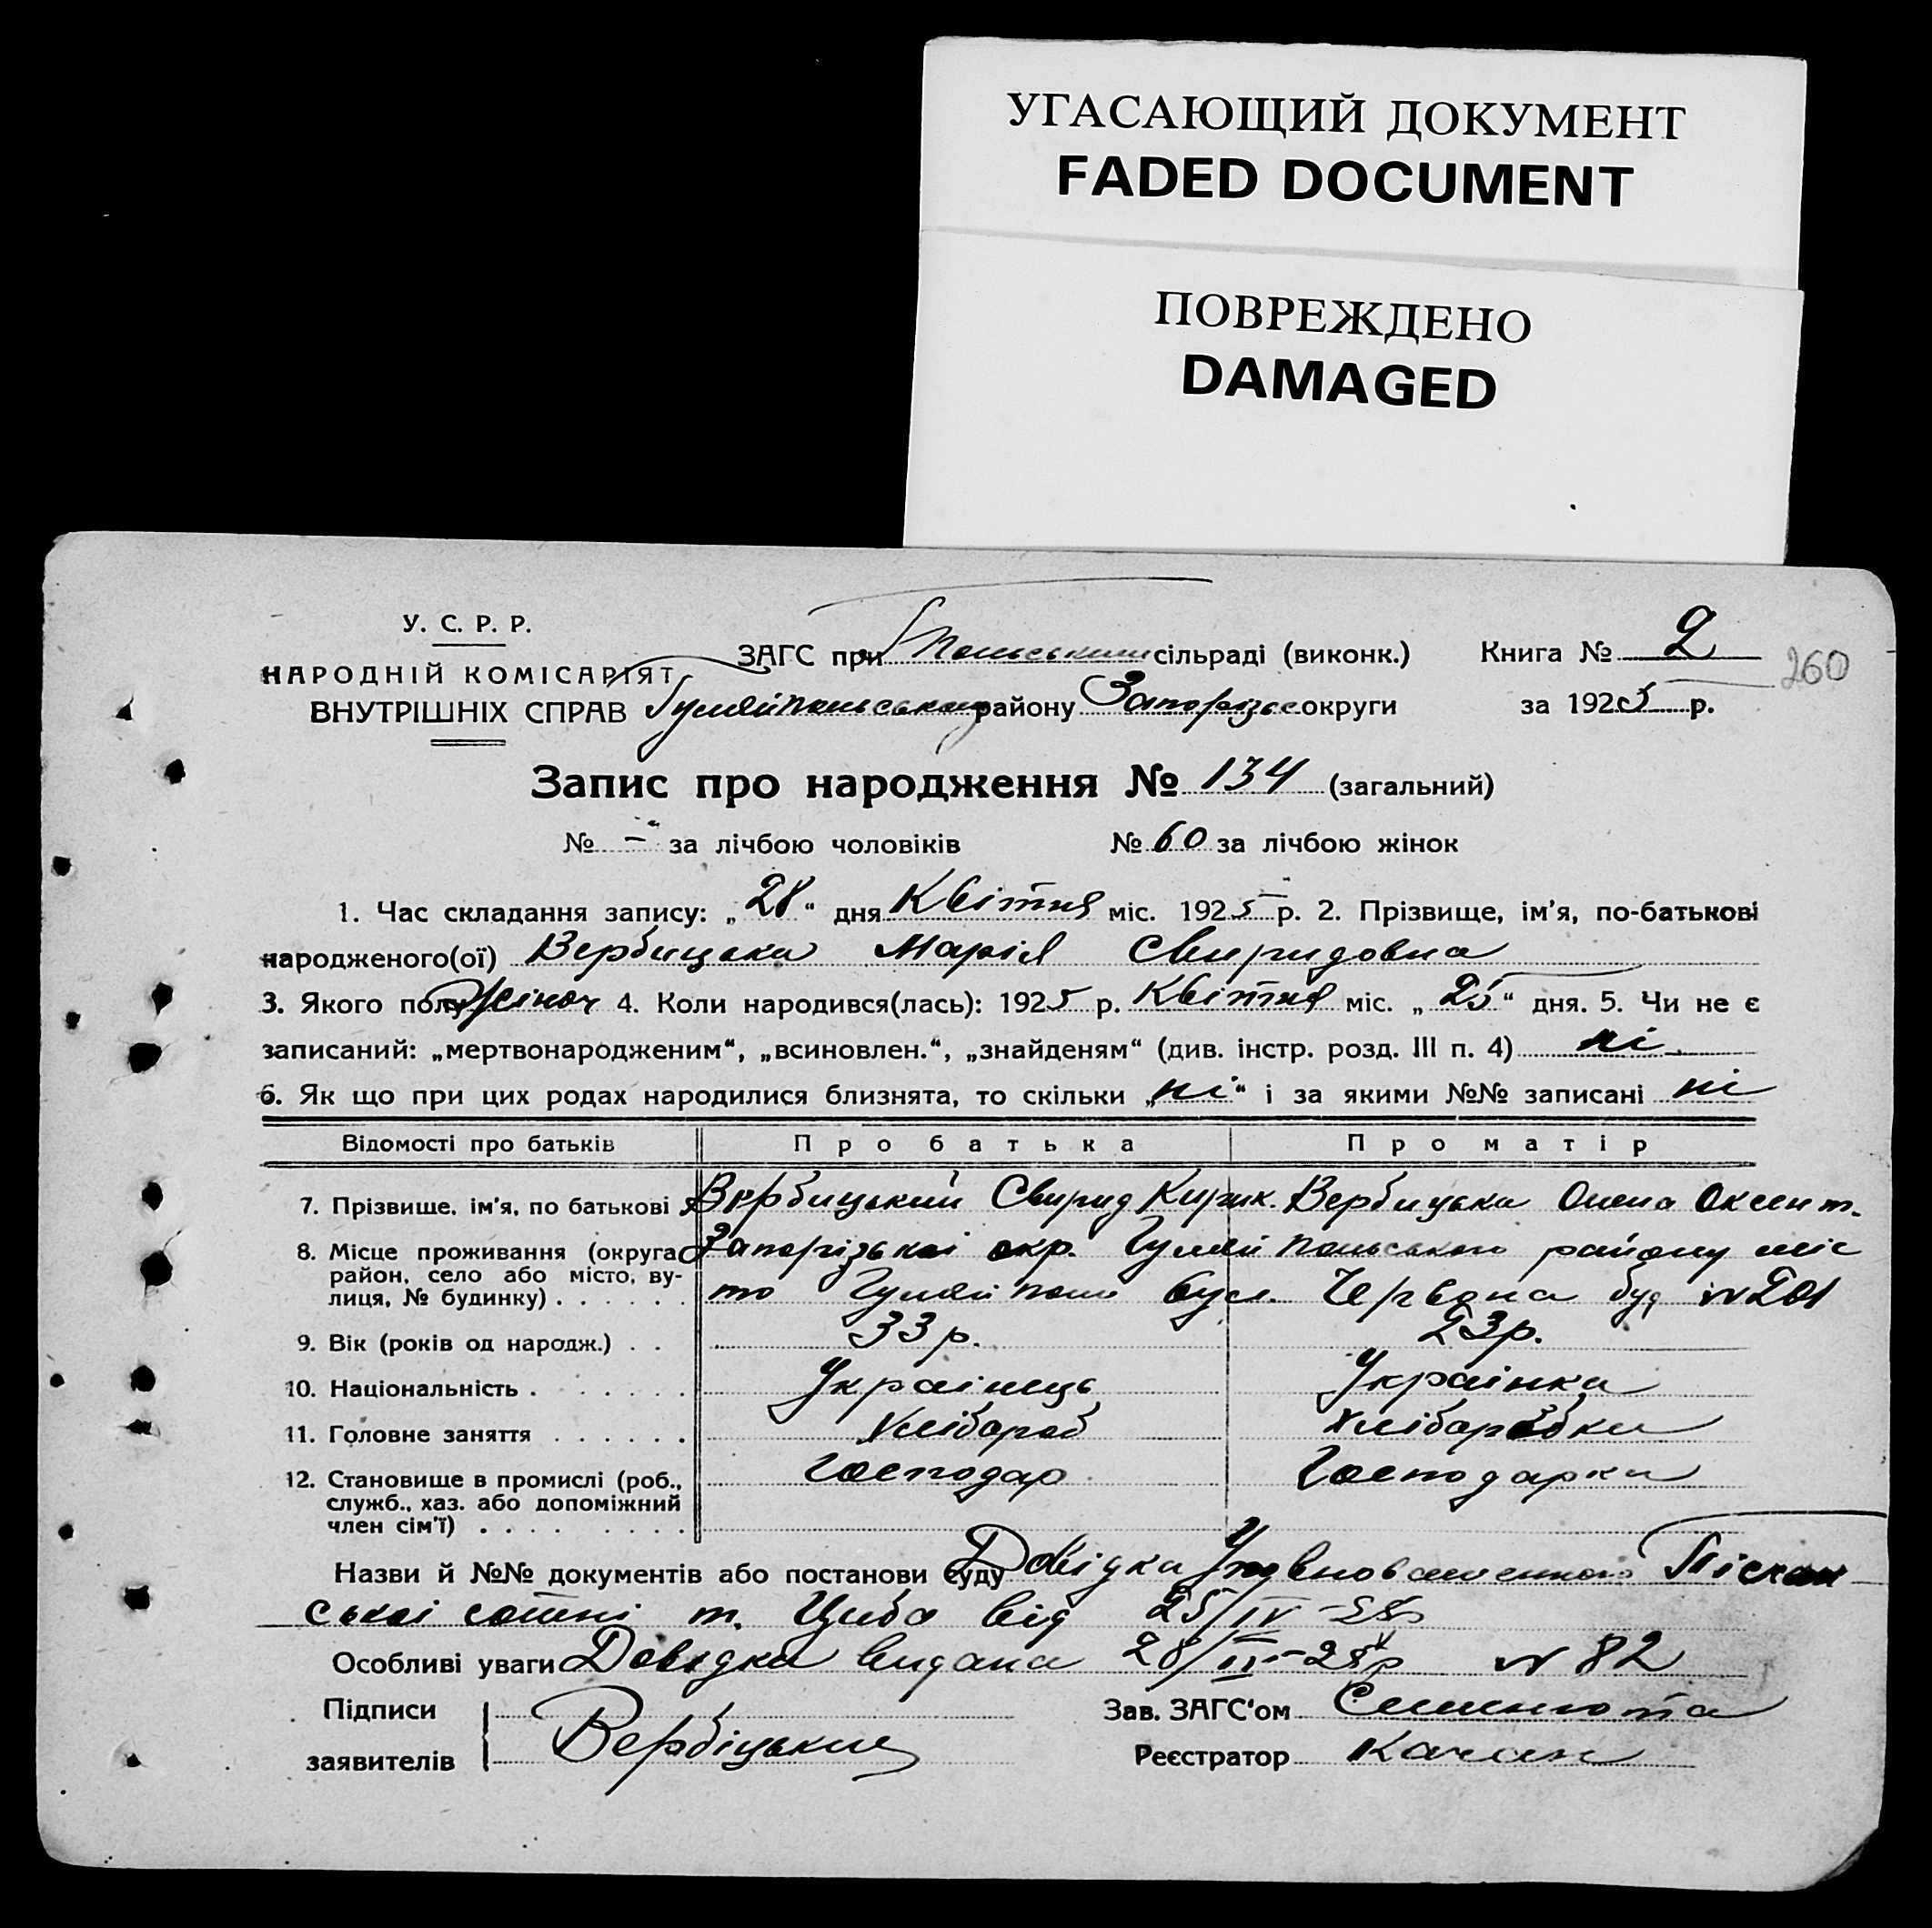 УГАСАЮЩИЙ ДОКУМЕНТ
FADED DOCUMENT
ПОВРЕЖДЕНО
DAMAGED
У. С. Р. Р.
НАРОДНІЙ КОМІСАРІЯТ
ВНУТРІШНІХ СПРАВ
ЗАГС при сільраді (виконк.)
Книга № 2
260
Гуляйпольського району Запорізьк округи
за 1925 р.
Запис про народження № 134 (загальний)
№ – за лічбою чоловіків № 60 за лічбою жінок
1. Час складання запису: „28“ дня Квітня міс. 1925 р. 2. Прізвище, ім’я, по-батькові
народженого(ої) Вербицька Марія Свиридовна
3. Якого полу Жіноч 4. Коли народився(лась): 1925 р. Квітня міс. „25“ дня. 5. Чи не є
записаний: „мертвонародженим“, „всиновлен.“, „знайденям“ (див. інстр. розд. III п. 4) ні
6. Як що при цих родах народилися близнята, то скільки „ні“ і за якими №№ записані ні
Відомості про батьків Про батька Про матір
7. Прізвище, ім’я, по батькові Вербицький Свирид Кирик. Вербицька Олена Оксент.
8. Місце проживання (округа Запорізької окр. Гуляйпольського району міс
район, село або місто, ву-
лиця, № будинку) . . . . . . то Гуляйполе вул. Червона буд № 201
9. Вік (років од народж.) . . 33 р. 23 р.
10. Національність . . . . . . . Українець Українка
11. Головне заняття . . . . . . Хлібороб Хліборобка
12. Становище в промислі (роб., Господар Господарка
служб., хаз. або допоміжний
член сім’ї) . . . . . . . .
Назви й №№ документів або постанови суду Довідка Уповноваженного Піскан
ської сотні т. Циба від 25/IV-25р
Особливі уваги Довідка видана 28/IV-25р № 82
Підписи
заявителів Вербіцький
Зав. ЗАГС‘ом
Реєстратор Качан